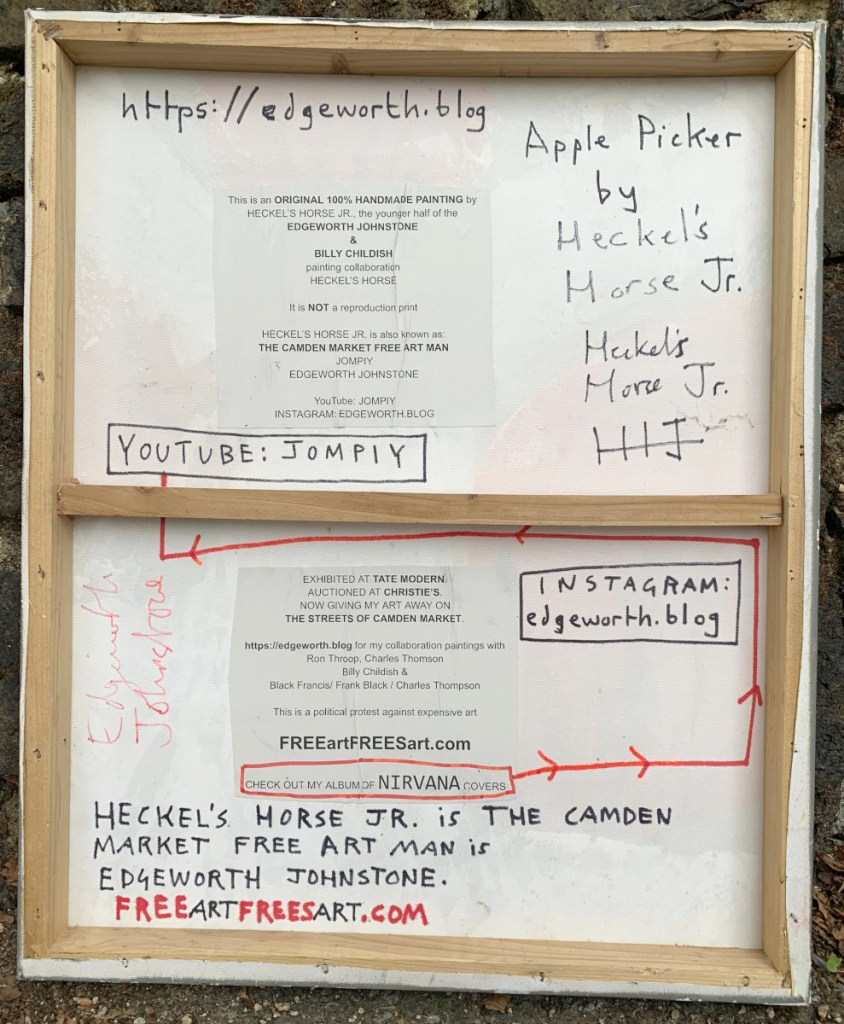 https://edgeworth.blog
Apple Picker
by
Heckel's
Horse Jr.
Heckel's
Horse Jr.
HHJ
This is an ORIGINAL 100% HANDMADE PAINTING by
HECKEL'S HORSE JR., the younger half of the
EDGEWORTH JOHNSTONE
&
BILLY CHILDISH
painting collaboration
HECKEL'S HORSE
It is NOT a reproduction print
HECKEL'S HORSE JR. is also known as:
THE CAMDEN MARKET FREE ART MAN
JOMPIY
EDGEWORTH JOHNSTONE
YouTube: JOMPIY
INSTAGRAM: EDGEWORTH.BLOG
YOUTUBE: JOMPIY
Edgeworth
Johnstone
EXHIBITED AT TATE MODERN.
AUCTIONED AT CHRISTIE'S.
NOW GIVING MY ART AWAY ON
THE STREETS OF CAMDEN MARKET.
https://edgeworth.blog for my collaboration paintings with
Ron Throop, Charles Thomson
Billy Childish &
Black Francis/ Frank Black / Charles Thompson
This is a political protest against expensive art
FREEartFREESart.com
CHECK OUT MY ALBUM OF NIRVANA COVERS
INSTAGRAM:
edgeworth.blog
HECKEL'S HORSE JR. is THE CAMDEN
MARKET FREE ART MAN is
EDGEWORTH JOHNSTONE.
FREEARTFREESART.COM